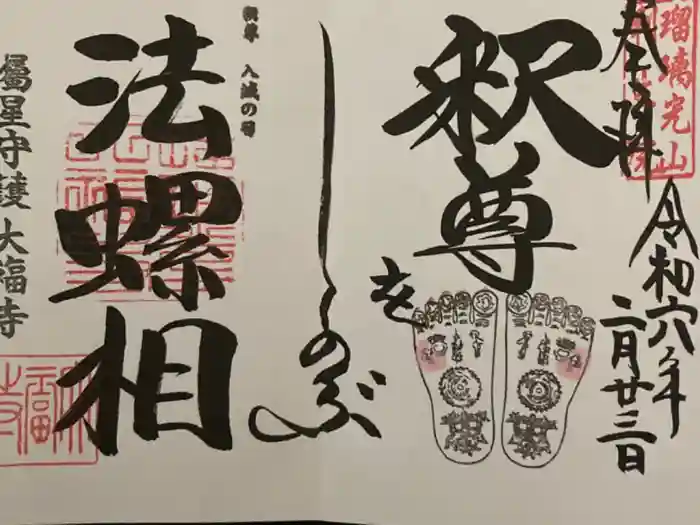 瑠璃光山
奉拝
令和六年
二月廿三日
釈尊
を
しのぶ
釈尊 入滅の日
法螺相
属星守護 大福寺